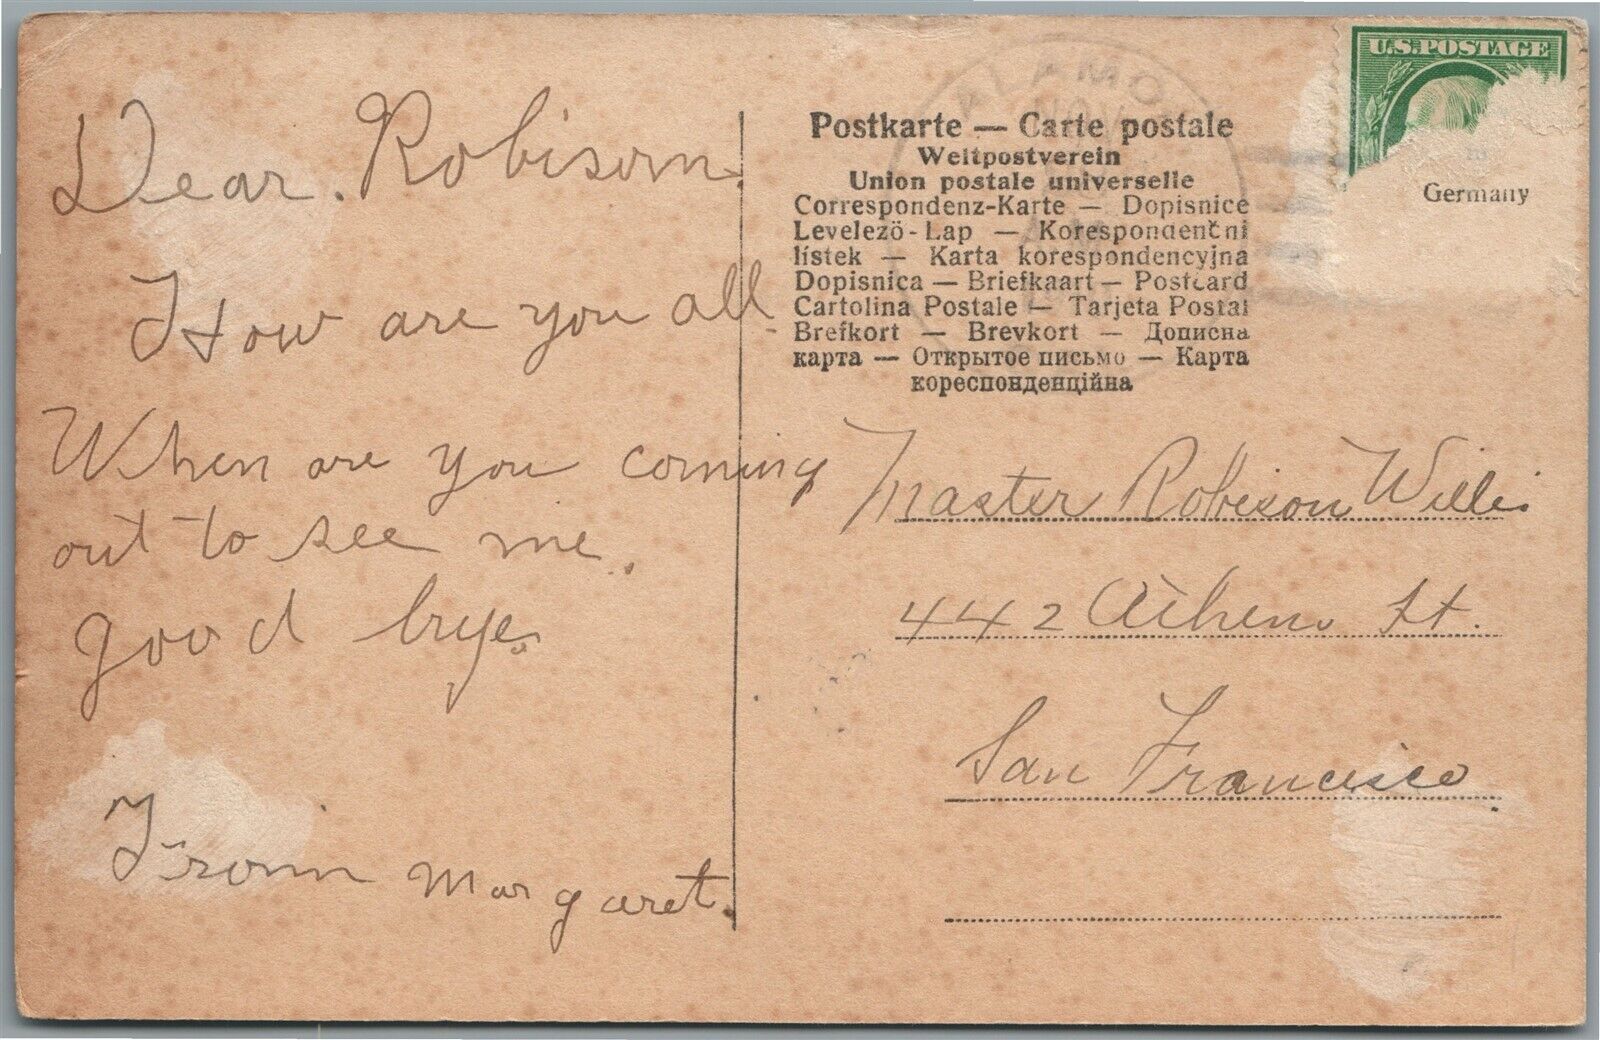 Dear. Robison.
How are you all
When are you coming
out to see me.
good bye.
From Margaret.
ALAMO
NOV
U.S. POSTAGE
Germany
Postkarte — Carte postale
Weltpostverein
Union postale universelle
Correspondenz-Karte — Dopisnice
Levelezö-Lap — Korespondenční
lístek — Karta korespondencyjna
Dopisnica — Briefkaart — Postcard
Cartolina Postale — Tarjeta Postal
Brefkort — Brevkort — Дописна
карта — Открытое письмо — Карта
кореспонденційна
Master Robison Willis
442 Athens St.
San Francisco